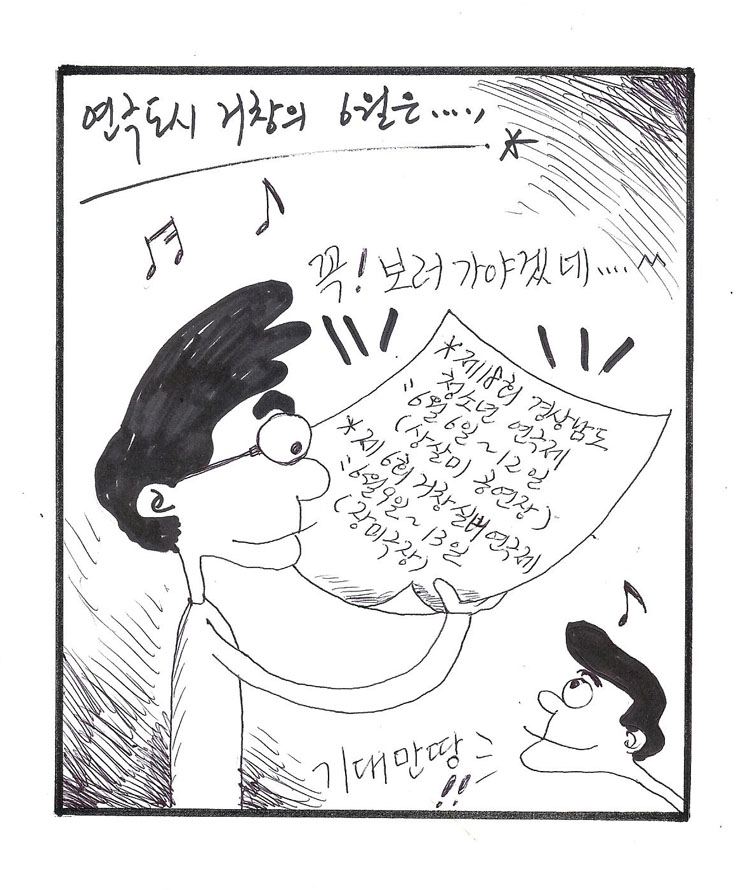 연극도시 거창의 6월은.....,
꼭! 보러 가야겠네....^^
*제18회 경상남도
청소년 연극제
"6월 6일~12일
(상살미 공연장)
*제6회 거창실버연극제
"6월9일~13일
(장미극장)
기대만땅
!!